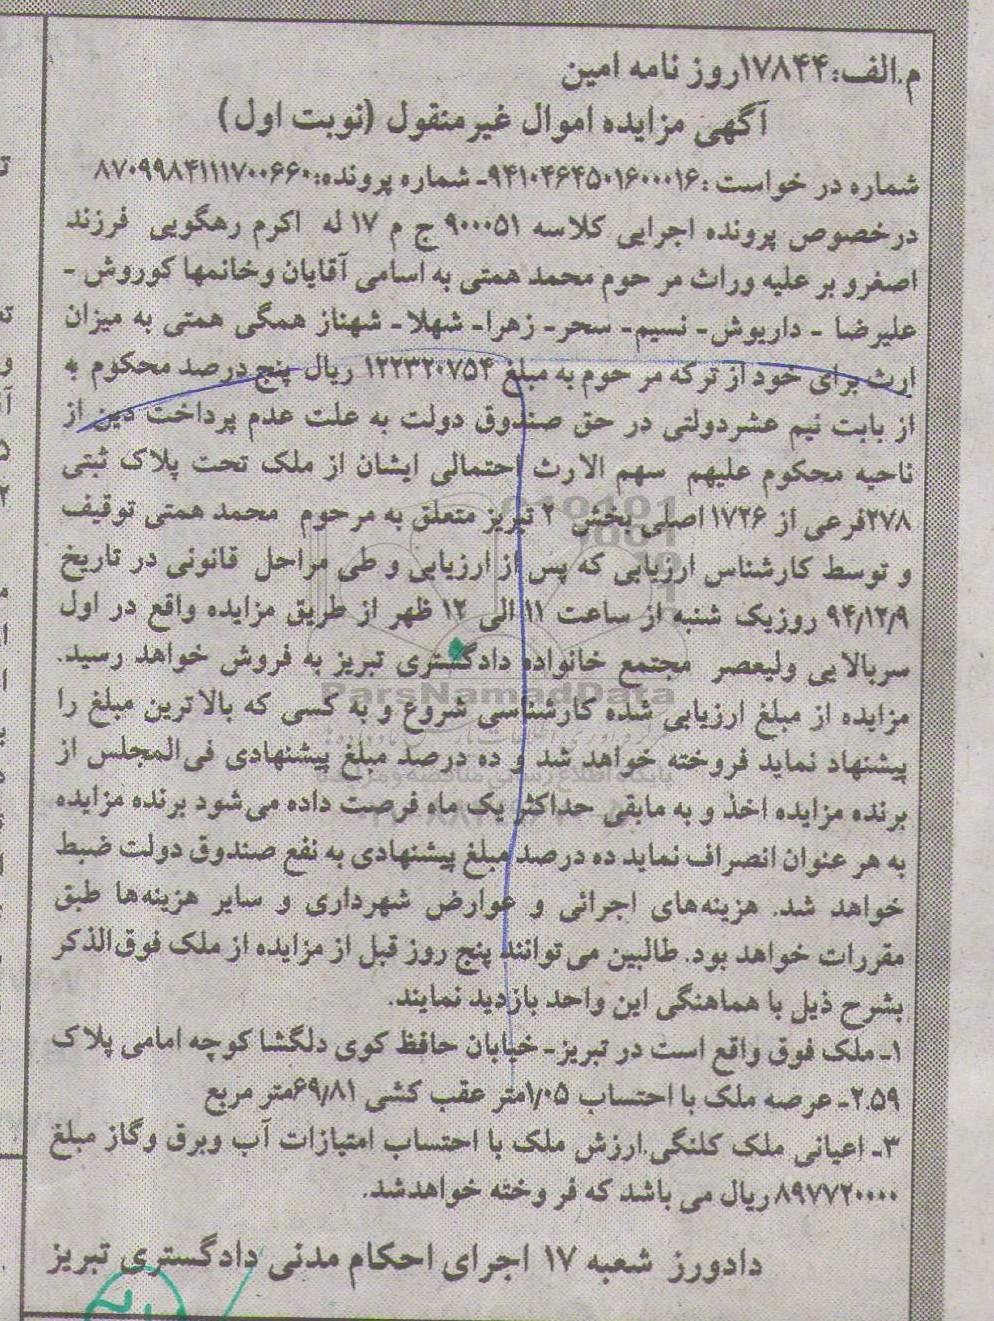 م.الف:۱۷۸۴۴روز نامه امین
آگهی مزایده اموال غیرمنقول (نوبت اول)
شماره در خواست :۹۴۱۰۴۶۴۵۰۱۶۰۰۰۱۶- شماره پرونده:۸۷۰۹۹۸۴۱۱۱۷۰۰۶۶۰
درخصوص پرونده اجرایی کلاسه ۹۰۰۰۵۱ ج م ۱۷ له اکرم رهگویی فرزند
اصغرو بر علیه وراث مر حوم محمد همتی به اسامی آقایان وخانمها کوروش -
علیرضا - داریوش- نسیم- سحر- زهرا- شهلا- شهناز همگی همتی به میزان
ارث برای خود از ترکه مر حوم به مبلغ ۱۲۲۳۲۰۷۵۴ ریال پنج درصد محکوم به
از بابت نیم عشردولتی در حق صندوق دولت به علت عدم پرداخت دین از
ناحیه محکوم علیهم سهم الارث احتمالی ایشان از ملک تحت پلاک ثبتی
۲۷۸فرعی از ۱۷۲۶ اصلی بخش ۲ تبریز متعلق به مرحوم محمد همتی توقیف
و توسط کارشناس ارزیابی که پس از ارزیابی و طی مراحل قانونی در تاریخ
۹۴/۱۲/۹ روزیک شنبه از ساعت ۱۱ الی ۱۲ ظهر از طریق مزایده واقع در اول
سربالا یی ولیعصر مجتمع خانواده دادگستری تبریز به فروش خواهد رسید.
مزایده از مبلغ ارزیابی شده کارشناسی شروع و به کسی که بالا ترین مبلغ را
پیشنهاد نماید فروخته خواهد شد و ده درصد مبلغ پیشنهادی فی‌المجلس از
برنده مزایده اخذ و به مابقی حداکثر یک ماه فرصت داده می‌شود برنده مزایده
به هر عنوان انصراف نماید ده درصد مبلغ پیشنهادی به نفع صندوق دولت ضبط
خواهد شد. هزینه‌های اجرائی و عوارض شهرداری و سایر هزینه‌ها طبق
مقررات خواهد بود. طالبین می‌توانند پنج روز قبل از مزایده از ملک فوق‌الذکر
بشرح ذیل با هماهنگی این واحد بازدید نمایند.
۱- ملک فوق واقع است در تبریز- خیابان حافظ کوی دلگشا کوچه امامی پلاک
۲.۵۹- عرصه ملک با احتساب ۱/۰۵متر عقب کشی ۶۹/۸۱متر مربع
۳- اعیانی ملک کلنگی.ارزش ملک با احتساب امتیازات آب وبرق وگاز مبلغ
۸۹۷۷۲۰۰۰۰ ریال می باشد که فر وخته خواهدشد.
دادورز شعبه ۱۷ اجرای احکام مدنی دادگستری تبریز
ParsNamadData